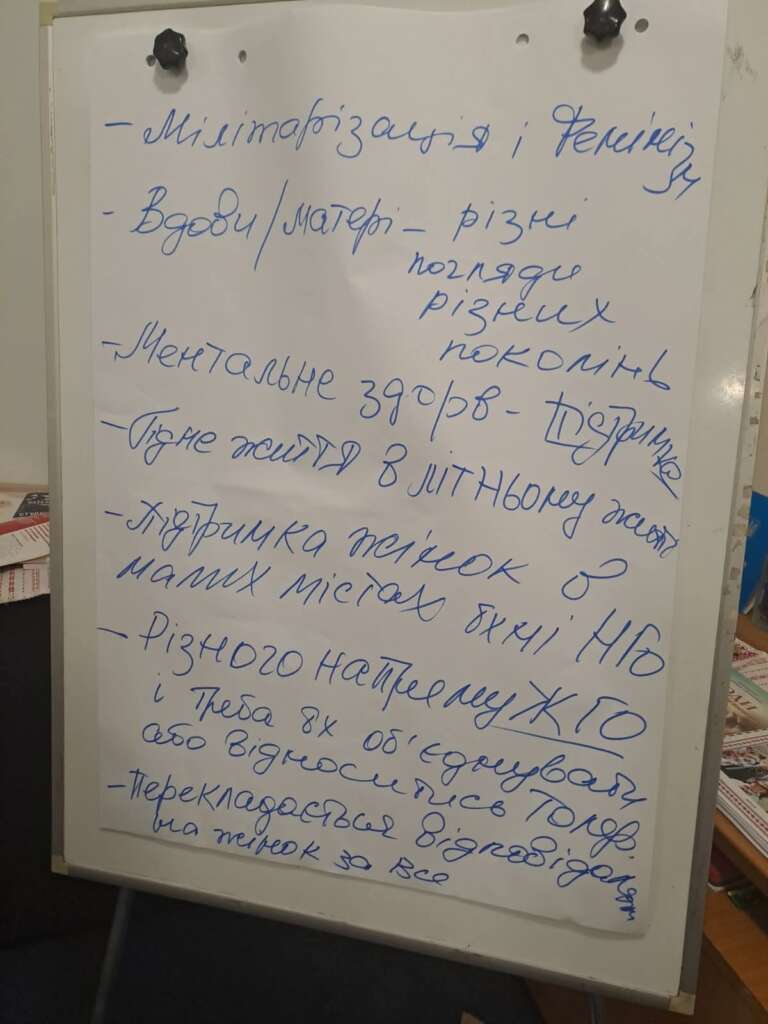 - Мілітаризація і Фемініз
м
- Вдови/матері - різні
погляди
різних
поколінь
- Ментальне здоров - підтримка
- Гідне життя в літньому житті
- Підтримка жінок в
малих містах їхні НГО
- Різного напряму ЖГО
і треба їх об'єднувати
або відноситись толер
- Перекладається відповідальн
на жінок за все